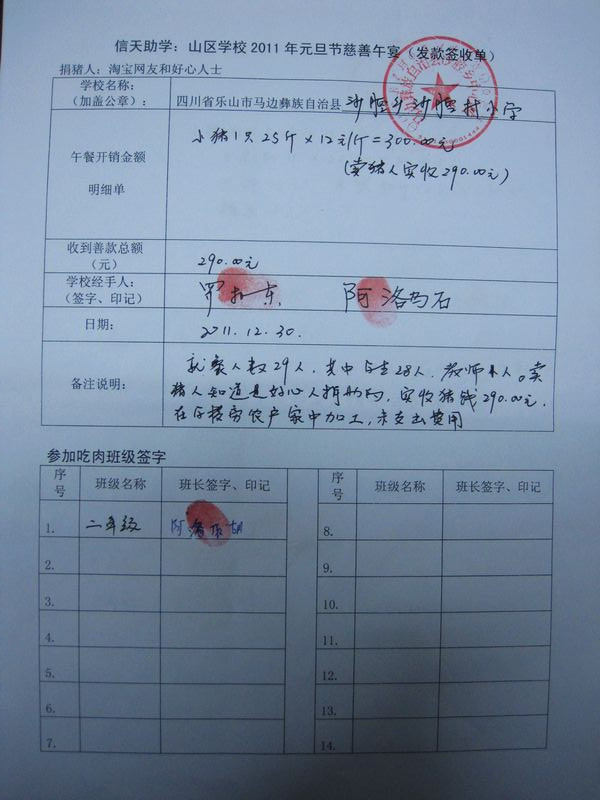 信天助学：山区学校 2011 年元旦节慈善午宴（发款签收单）
捐猪人：淘宝网友和好心人士
学校名称：
（加盖公章）：
四川省乐山市马边彝族自治县 沙腔乡沙腔村小学
午餐开销金额
明细单
小猪1只 25斤×12元/斤=300.00元
(卖猪人实收290.00元)
收到善款总额
（元）
290.00元
学校经手人：
（签字、印记）
阿洛
日期：
2011.12.30.
备注说明：
就餐人数29人，其中学生28人，教师1人。卖
猪人知道是好心人捐助的，实收猪钱290.00元.
在学校旁农户家中加工，未支出费用
参加吃肉班级签字
序号 班级名称 班长签字、印记 序号 班级名称 班长签字、印记
1. 二年级 阿洛 8.
2. 9.
3. 10.
4. 11.
5. 12.
6. 13.
7. 14.